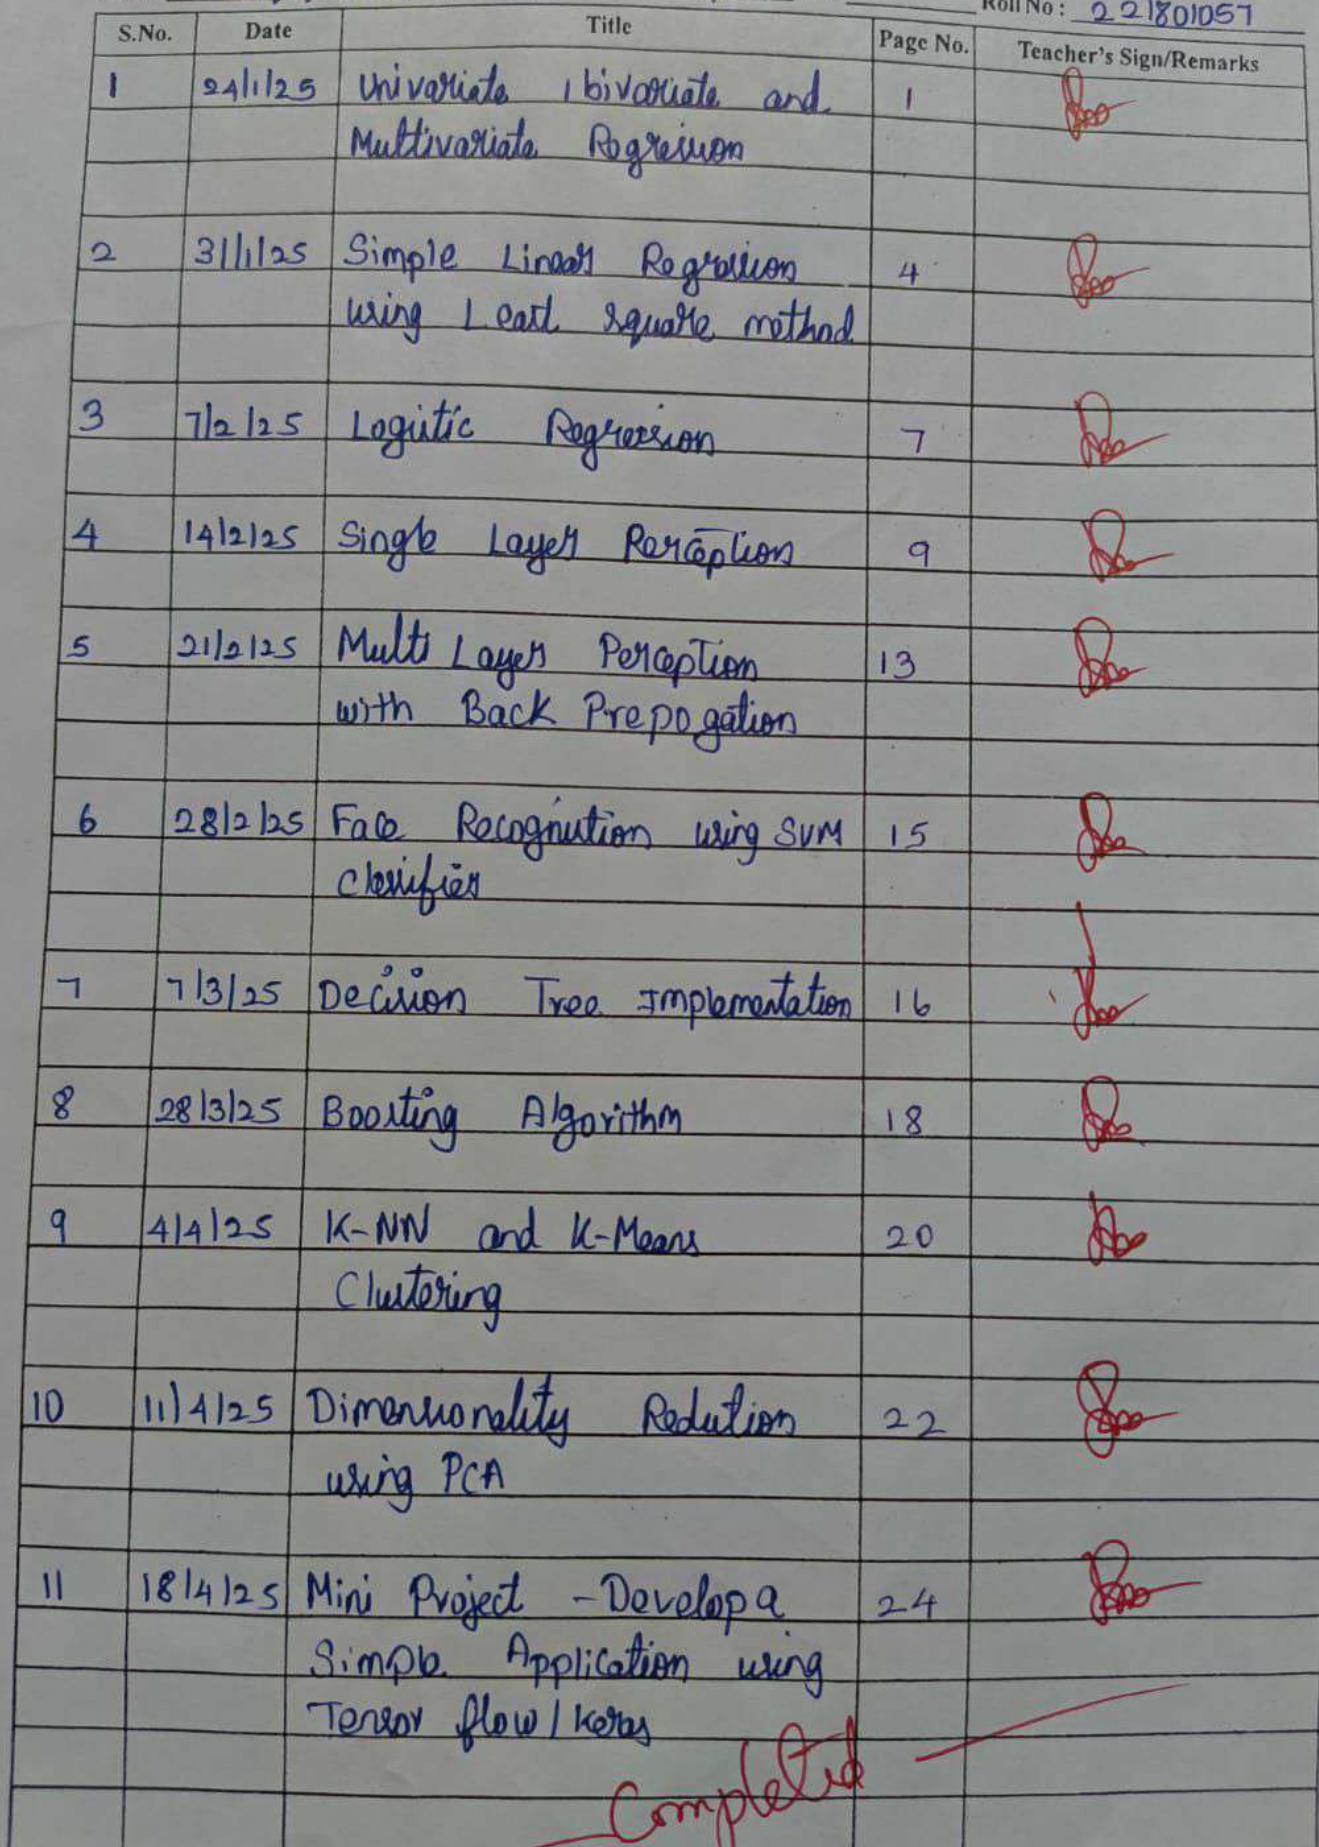 Roll No : 221801057
S.No. Date Title Page No. Teacher's Sign/Remarks
1 24/1/25 Univariate, bivariate and 1
Multivariate Regression
2 31/1/25 Simple Linear Regression 4
using Least square method
3 7/2/25 Logistic Regression 7
4 14/2/25 Single Layer Perception 9
5 21/2/25 Multi Layer Perception 13
with Back Prepogation
6 28/2/25 Face Recognition using SVM 15
classifier
7 7/3/25 Decision Tree Implementation 16
8 28/3/25 Boosting Algorithm 18
9 4/4/25 K-NN and K-Means 20
Clustering
10 11/4/25 Dimensionality Redution 22
using PCA
11 18/4/25 Mini Project - Develop a 24
Simple Application using
Tensor flow / Keras
Completed